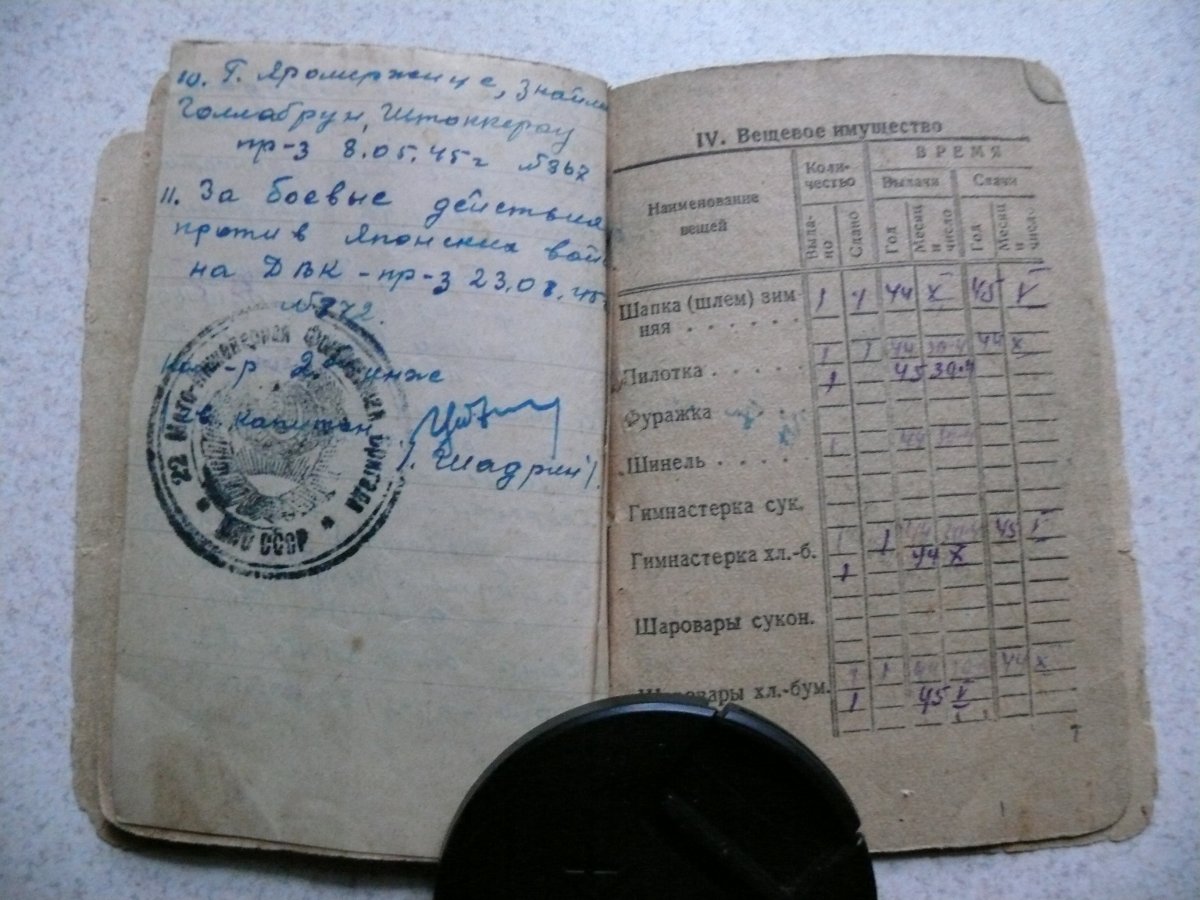 10. Г. Яромержице, Знайм
Голлабрун, Штоккерау
пр-з 8.05.45г №367
11. За боевые действия
против Японских вой
на ДВК - пр-з 23.08.45г
№372.
ком-р 2 инж
в капитан
/. Шадрин /.
22 Мото-инженерная бригада
СССР
IV. Вещевое имущество
Наименование вещей
Коли-чество
ВРЕМЯ
Выдачи
Сдачи
Выда-но
Сдано
Год
Месяц и число
Год
Месяц и число
Шапка (шлем) зим
няя . . . . . . 1 1 44 X 45 V
1 1 44 30.4 44 X
Пилотка . . . . . 1 45 30.4
Фуражка
1 44
Шинель . . . . .
Гимнастерка сук.
1 1 44 45 V
Гимнастерка хл.-б. 1 44 X
Шаровары сукон.
1 1 44 44 X
Шаровары хл.-бум. 1 45 V
7